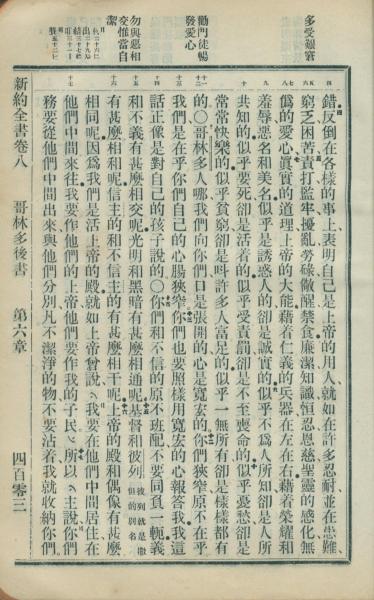 多受艱窘
勸門徒暢
發愛心
勿與惡相
交惟當自
潔
四
錯反倒在各樣的事上表明自己是上帝的用人就如在許多忍耐並在患難
五六
窮乏困苦責打監牢擾亂勞碌儆醒禁食廉潔知識恒忍恩慈聖靈的感化無
七八
僞的愛心眞實的道理上帝的大能藉着仁義的兵器在左在右藉着榮耀和
九
羞辱惡名和美名似乎是誘惑人的卻是誠實的似乎不爲人所知卻是人所
十
共知的似乎要死卻是活着的似乎受責罰卻是不至喪命的似乎憂愁卻是
常常快樂的似乎貧窮卻是呌許多人富足的似乎一無所有卻是樣樣都有
十一十二
的○哥林多人哪我們向你們口是張開的心是寬宏的你們狹窄原不在乎
十三
我們是在乎你們自己的心腸狹窄你們也要照樣用寬宏的心報答我我這
十四
話正像是對自己的孩子說的○你們和不信的原不班配不要同負一軛義
十五
和不義有甚麼相交呢光明和黑暗有甚麼相通呢基督和彼列彼列就是撒但的別名
十六
有甚麼相和呢信主的和不信主的有甚麼相干呢上帝的殿和偶像有甚麼
相同呢因爲我們是活上帝的殿就如上帝曾說我要在他們中間居住在
十七
他們中間來往我要作他們的上帝他們要作我的子民所以主說你們
務要從他們中間出來與他們分別凡不潔淨的物不要沾着我就收納你們
新約全書卷八 哥林多後書 第六章 四百零三